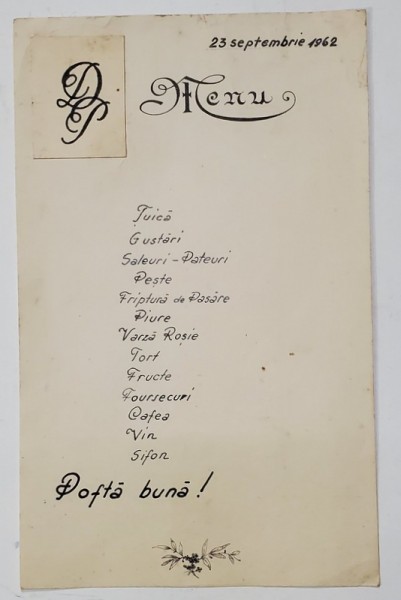 23 septembrie 1962
DP
Menu
Țuică
Gustări
Saleuri - Pateuri
Pește
Friptură de Pasăre
Piure
Varză Roșie
Tort
Fructe
Foursecuri
Cafea
Vin
Sifon
Poftă bună!